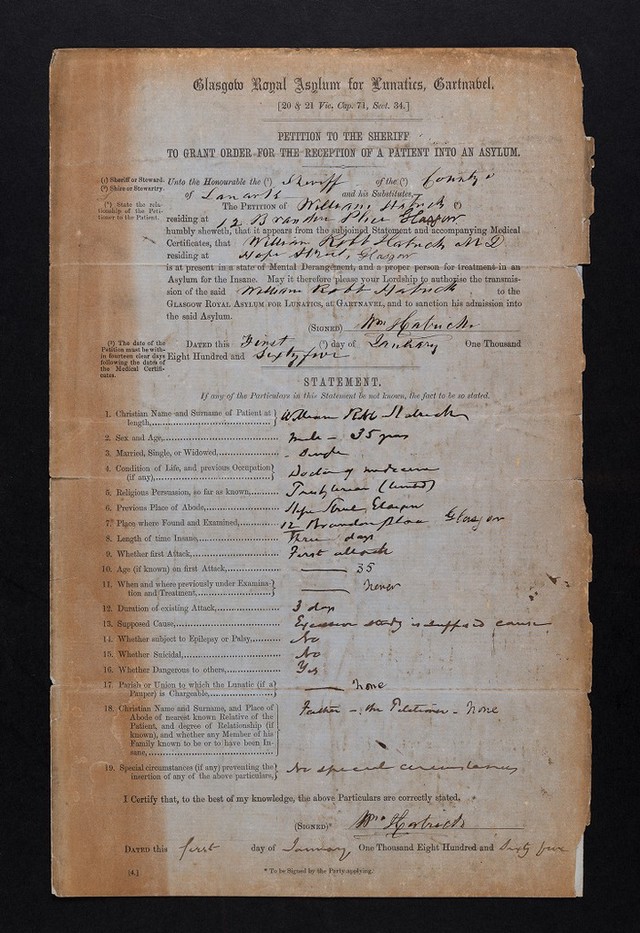 Glasgow Royal Asylum for Lunatics, Gartnavel.
[20 & 21 Vic. Cap. 71, Sect. 34.]
PETITION TO THE SHERIFF
TO GRANT ORDER FOR THE RECEPTION OF A PATIENT INTO AN ASYLUM.
(¹) Sheriff or Steward.
(²) Shire or Stewartry.
(³) State the rela-
tionship of the Peti-
tioner to the Patient.
Unto the Honourable the (¹) Sheriff of the (²) County
of Lanark and his Substitutes,
The Petition of William (³)
residing at 12 Brandon Place Glasgow
humbly sheweth, that it appears from the subjoined Statement and accompanying Medical
Certificates, that William Robb M D
residing at Hope Street, Glasgow
is at present in a state of Mental Derangement, and a proper person for treatment in an
Asylum for the Insane. May it therefore please your Lordship to authorise the transmis-
sion of the said William Robb to the
Glasgow Royal Asylum for Lunatics, at Gartnavel, and to sanction his admission into
the said Asylum.
(Signed) Wm
(³) The date of the
Petition must be with-
in fourteen clear days
following the dates of
the Medical Certifi-
cates.
Dated this First (³) day of January One Thousand
Eight Hundred and Sixty five
STATEMENT.
If any of the Particulars in this Statement be not known, the fact to be so stated.
1. Christian Name and Surname of Patient at
length, William Robb
2. Sex and Age, Male - 35 years
3. Married, Single, or Widowed, Single
4. Condition of Life, and previous Occupation
(if any), Doctor of medicine
5. Religious Persuasion, so far as known, Presbyterian (United)
6. Previous Place of Abode, Hope Street Glasgow
7. Place where Found and Examined, 12 Brandon place Glasgow
8. Length of time Insane, Three days
9. Whether first Attack, First attack
10. Age (if known) on first Attack, 35
11. When and where previously under Examina-
tion and Treatment, never
12. Duration of existing Attack, 3 days
13. Supposed Cause, Excessive study is supposed cause
14. Whether subject to Epilepsy or Palsy, No
15. Whether Suicidal, No
16. Whether Dangerous to others, Yes
17. Parish or Union to which the Lunatic (if a
Pauper) is Chargeable, none
18. Christian Name and Surname, and Place of
Abode of nearest known Relative of the
Patient, and degree of Relationship (if
known), and whether any Member of his
Family known to be or to have been In-
sane, Father - the Petitioner - None
19. Special circumstances (if any) preventing the
insertion of any of the above particulars, No special circumstances
I Certify that, to the best of my knowledge, the above Particulars are correctly stated.
(Signed)* Wm
Dated this first day of January, One Thousand Eight Hundred and Sixty five
[4.]
* To be Signed by the Party applying.